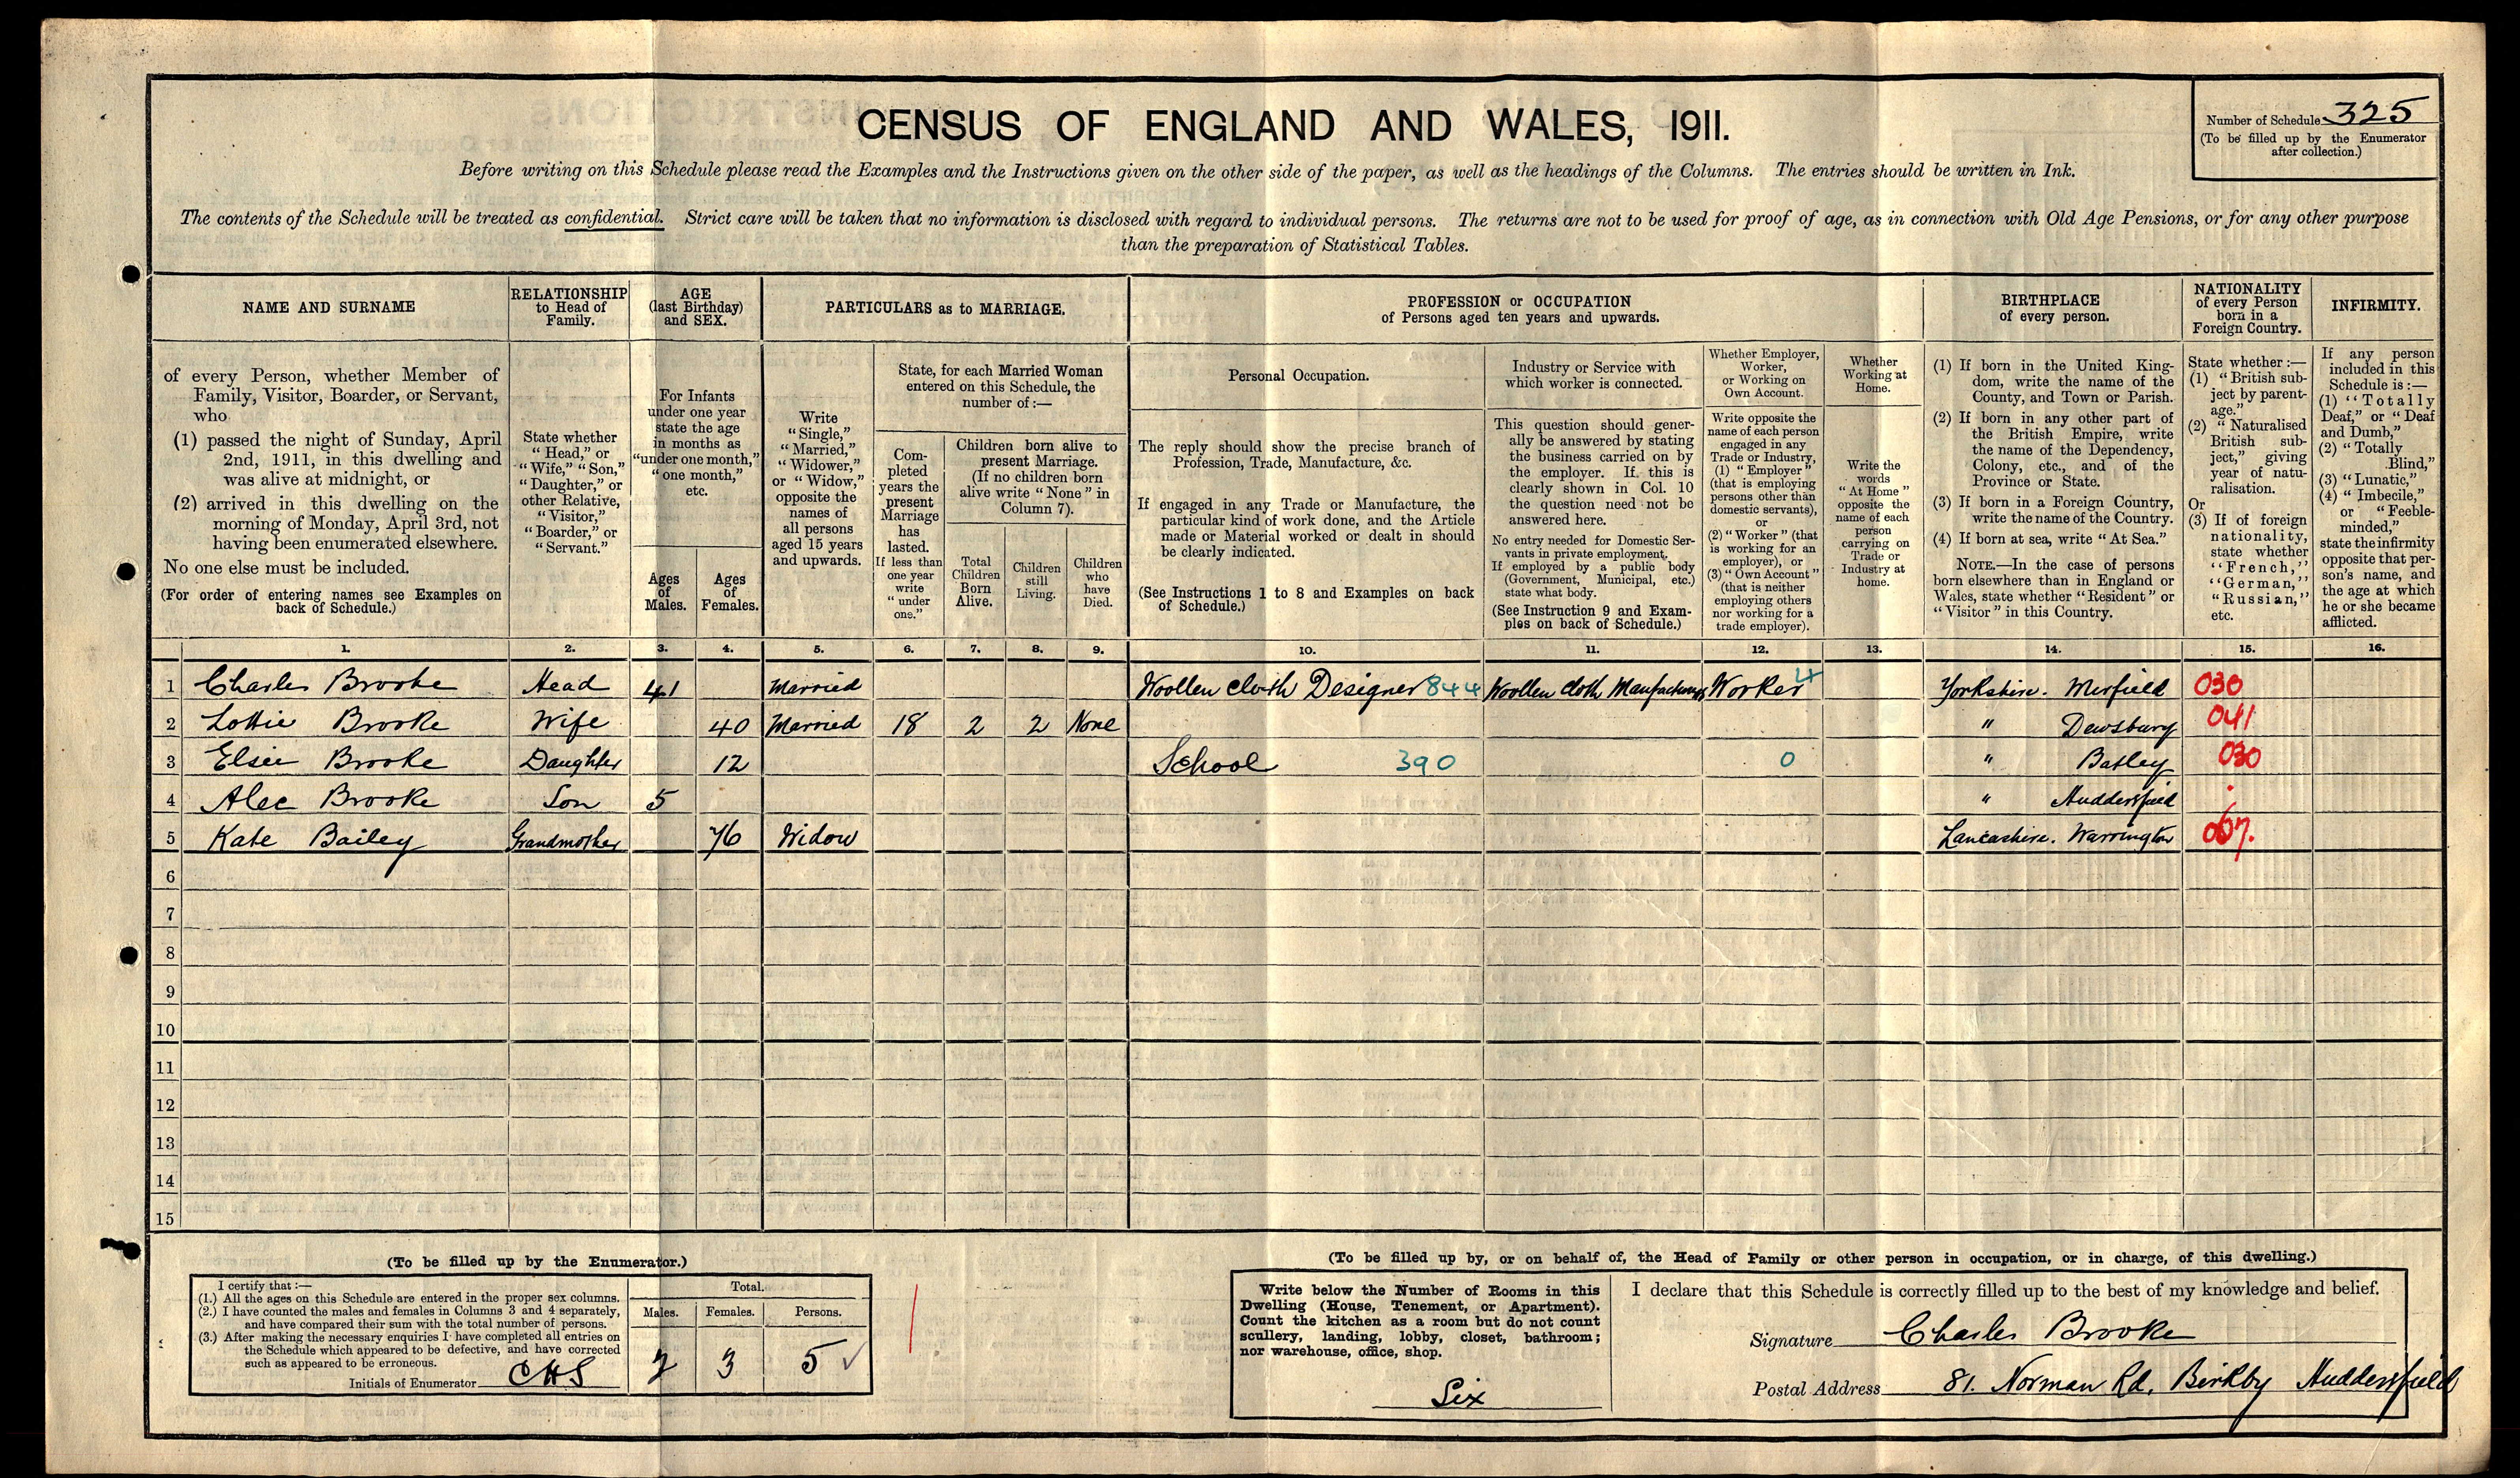 CENSUS OF ENGLAND AND WALES, 1911.
Number of Schedule 325
(To be filled up by the Enumerator
after collection.)
Before writing on this Schedule please read the Examples and the Instructions given on the other side of the paper, as well as the headings of the Columns. The entries should be written in Ink.
The contents of the Schedule will be treated as confidential. Strict care will be taken that no information is disclosed with regard to individual persons. The returns are not to be used for proof of age, as in connection with Old Age Pensions, or for any other purpose
than the preparation of Statistical Tables.
NAME AND SURNAME
of every Person, whether Member of
Family, Visitor, Boarder, or Servant,
who
(1) passed the night of Sunday, April
2nd, 1911, in this dwelling and
was alive at midnight, or
(2) arrived in this dwelling on the
morning of Monday, April 3rd, not
having been enumerated elsewhere.
No one else must be included.
(For order of entering names see Examples on
back of Schedule.)
RELATIONSHIP
to Head of
Family.
State whether
"Head," or
"Wife," "Son,"
"Daughter," or
other Relative,
"Visitor,"
"Boarder," or
"Servant."
AGE
(last Birthday)
and SEX.
For Infants
under one year
state the age
in months as
"under one month,"
"one month,"
etc.
Ages
of
Males.
Ages
of
Females.
PARTICULARS as to MARRIAGE.
Write
"Single,"
"Married,"
"Widower,"
or "Widow,"
opposite the
names of
all persons
aged 15 years
and upwards.
State, for each Married Woman
entered on this Schedule, the
number of :—
Com-
pleted
years the
present
Marriage
has
lasted.
If less than
one year
write
"under
one."
Children born alive to
present Marriage.
(If no children born
alive write "None" in
Column 7).
Total
Children
Born
Alive.
Children
still
Living.
Children
who
have
Died.
PROFESSION or OCCUPATION
of Persons aged ten years and upwards.
Personal Occupation.
The reply should show the precise branch of
Profession, Trade, Manufacture, &c.
If engaged in any Trade or Manufacture, the
particular kind of work done, and the Article
made or Material worked or dealt in should
be clearly indicated.
(See Instructions 1 to 8 and Examples on back
of Schedule.)
Industry or Service with
which worker is connected.
This question should gener-
ally be answered by stating
the business carried on by
the employer. If this is
clearly shown in Col. 10
the question need not be
answered here.
No entry needed for Domestic Ser-
vants in private employment.
If employed by a public body
(Government, Municipal, etc.)
state what body.
(See Instruction 9 and Exam-
ples on back of Schedule.)
Whether Employer,
Worker,
or Working on
Own Account.
Write opposite the
name of each person
engaged in any
Trade or Industry,
(1) "Employer"
(that is employing
persons other than
domestic servants),
or
(2) "Worker" (that
is working for an
employer), or
(3) "Own Account"
(that is neither
employing others
nor working for a
trade employer).
Whether
Working at
Home.
Write the
words
"At Home"
opposite the
name of each
person
carrying on
Trade or
Industry at
home.
BIRTHPLACE
of every person.
(1) If born in the United King-
dom, write the name of the
County, and Town or Parish.
(2) If born in any other part of
the British Empire, write
the name of the Dependency,
Colony, etc., and of the
Province or State.
(3) If born in a Foreign Country,
write the name of the Country.
(4) If born at sea, write "At Sea."
NOTE.—In the case of persons
born elsewhere than in England or
Wales, state whether "Resident" or
"Visitor" in this Country.
NATIONALITY
of every Person
born in a
Foreign Country.
State whether :—
(1) "British sub-
ject by parent-
age."
(2) "Naturalised
British sub-
ject," giving
year of natu-
ralisation.
Or
(3) If of foreign
nationality,
state whether
"French,"
"German,"
"Russian,"
etc.
INFIRMITY.
If any person
included in this
Schedule is :—
(1) "Totally
Deaf," or "Deaf
and Dumb,"
(2) "Totally
Blind,"
(3) "Lunatic,"
(4) "Imbecile,"
or "Feeble-
minded,"
state the infirmity
opposite that per-
son's name, and
the age at which
he or she became
afflicted.
1. 2. 3. 4. 5. 6. 7. 8. 9. 10. 11. 12. 13. 14. 15. 16.
1 Charles Brooke Head 41 Married Woollen cloth Designer 844 Woollen cloth Manufacturing Worker 4 Yorkshire. Mirfield 030
2 Lottie Brooke Wife 40 Married 18 2 2 None " Dewsbury 041
3 Elsie Brooke Daughter 12 School 390 0 " Batley 030
4 Alec Brooke Son 5 " Huddersfield
5 Kate Bailey Grandmother 76 Widow Lancashire. Warrington
6
7
8
9
10
11
12
13
14
15
(To be filled up by the Enumerator.)
I certify that :—
(1.) All the ages on this Schedule are entered in the proper sex columns.
(2.) I have counted the males and females in Columns 3 and 4 separately,
and have compared their sum with the total number of persons.
(3.) After making the necessary enquiries I have completed all entries on
the Schedule which appeared to be defective, and have corrected
such as appeared to be erroneous.
Initials of Enumerator CHS
Total.
Males. Females. Persons.
2 3 5
(To be filled up by, or on behalf of, the Head of Family or other person in occupation, or in charge, of this dwelling.)
Write below the Number of Rooms in this
Dwelling (House, Tenement, or Apartment).
Count the kitchen as a room but do not count
scullery, landing, lobby, closet, bathroom;
nor warehouse, office, shop.
Six
I declare that this Schedule is correctly filled up to the best of my knowledge and belief.
Signature Charles Brooke
Postal Address 81. Norman Rd, Birkby Huddersfield